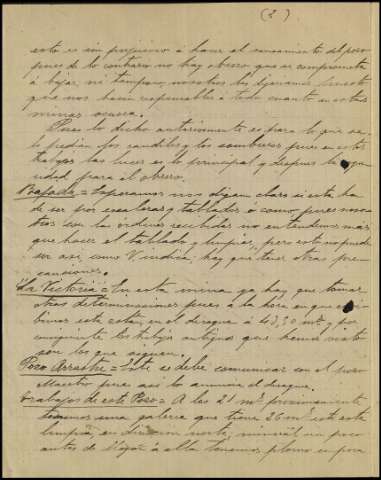 (2)
esto es sin perjuicio á hacer el saneamiento del pozo
pues de lo contrario no hay obrero que se comprometa
á bajar, ni tampoco nosotros les dejariamos puesto
que nos hacen responsables á todo cuanto en estas
minas ocurra.
Pues lo dicho anteriormente es para lo que se
le pedian los candiles y los sombreros pues en estos
trabajos las luces es lo principal y despues la segu
ridad para el obrero.
Bajada = Esperamos nos digan claro si esta ha
de ser por escaleras y tablados ó como pues noso
tros son las ordenes recibidas no entendemos mas
que hacer el tablado y limpiar, pero esto no puede
ser asi, como V indica; hay que tener otras pre
cauciones.
La Victoria = En esta mina ya hay que tomar
otras determinaciones pues á la hora en que escri
bimos este estan en el desagüe á 43,20 mts y por
consiguiente los trabajos antiguos que hemos visto
son los que siguen.
Pozo Arrastre = Este se debe comunicar con el pozo
Maestro pues asi lo anuncia el desagüe.
Trabajos de este Pozo = A los 21 mts proximamente
tenemos una galeria que tiene 26 mts esta esta
limpia, en direccion norte, mineral un poco
antes de llegar á alta tenemos plomo en poca